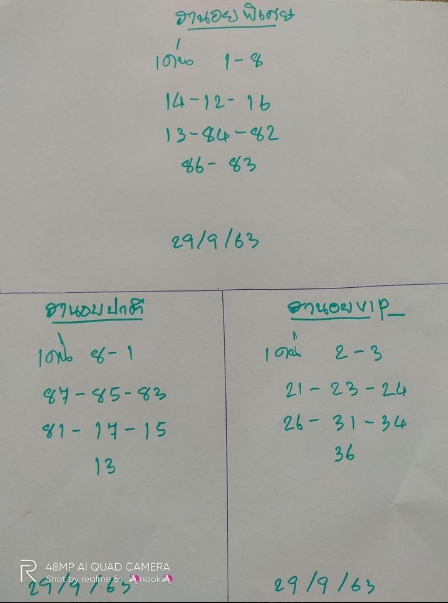 ฮานอยพิเศษ
เด่น 1-8
14-12-16
13-84-82
86-83
29/9/63
ฮานอยปกติ
เด่น 8-1
87-85-83
81-17-15
13
29/9/63
ฮานอยVIP
เด่น 2-3
21-23-24
26-31-34
36
29/9/63
48MP AI QUAD CAMERA
Shot by realme 5s nook